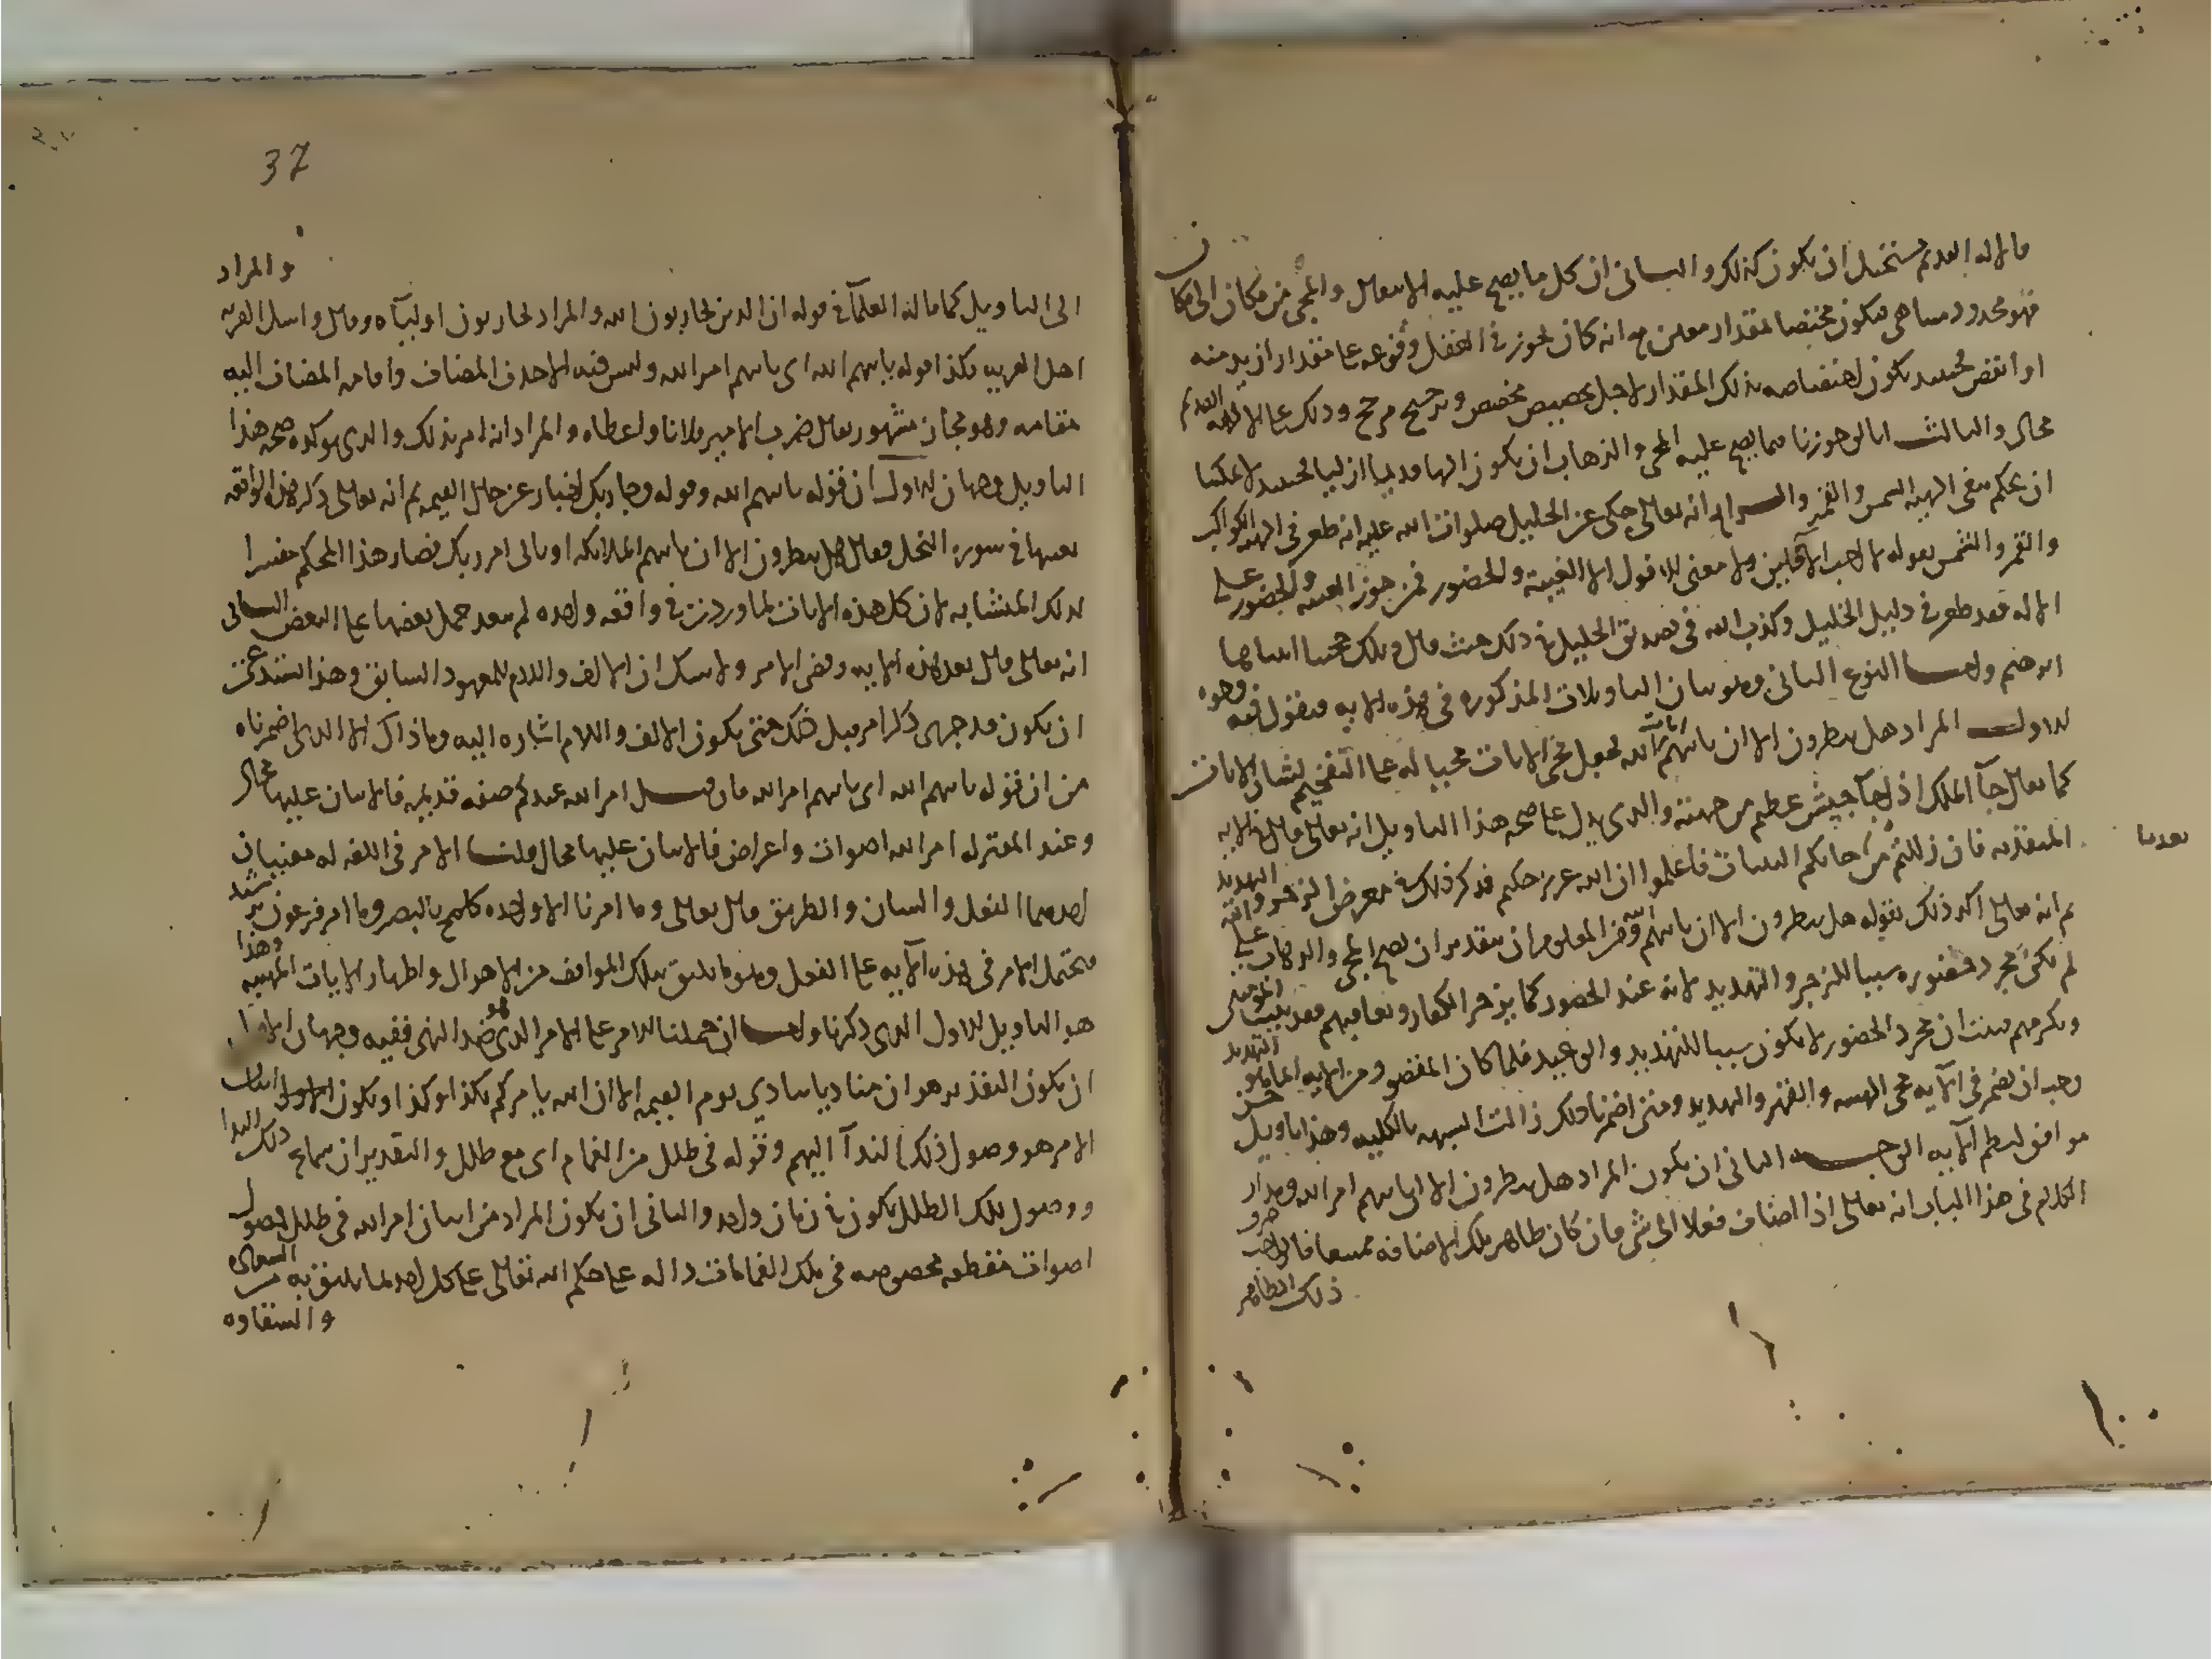 فالاله القديم يستحيل ان يكون كذلك والثاني ان كل ما يصح عليه الانتقال والمجي من مكان الى مكان
فهو محدود متناهي فيكون مختصا بمقدار معين مع انه كان يجوز في العقل وقوعه على مقدار ازيد منه
او انقص فحينئذ يكون اختصاصه بذلك المقدار لاجل تخصيص مخصص وترجيح مرجح وذلك على الاله القديم
محال والثالث انا لو جوزنا فيما يصح عليه المجي والذهاب ان يكون الها قديما ازليا فحينئذ لا يمكننا
ان نحكم بنفي الهية الشمس والقمر والرابع انه تعالى حكى عن الخليل صلوات الله عليه انه طعن في الهية الكواكب
والقمر والشمس بقوله لا احب الآفلين ولا معنى للافول الا الغيبة والحضور فمن جوز الغيبة والحضور على
الاله فقد طعن في دليل الخليل وكذب الله في تصديق الخليل في ذلك حيث قال وتلك حجتنا آتيناها
ابرهيم واما النوع الثاني وهو بيان التاويلات المذكورة في هذه الاية فنقول فيه وجوه
الاول المراد هل ينظرون الا ان ياتيهم آيات الله فجعل مجي الايات مجيا له على التفخيم لشان الايات
كما يقال جآ الملك اذا جآ جيش عظيم من جهته والذي يدل على صحة هذا التاويل انه تعالى قال في الاية
المتقدمة فان زللتم من بعد ما جاتكم البينات فاعلموا ان الله عزيز حكيم فذكر ذلك في معرض الزجر والتهديد
ثم انه تعالى اكد ذلك بقوله هل ينظرون الا ان ياتيهم الله ومن المعلوم ان بتقدير ان يصح المجي والذهاب على الله
لم يكن مجرد حضوره سببا للزجر والتهديد لانه عند الحضور كما يزجر الكفار ويعاقبهم فقد يثيب المومنين
ويكرمهم فثبت ان مجرد الحضور لا يكون سببا للتهديد والوعيد فلما كان المقصود من الاية انما هو التهديد
وجب ان يضمر في الآية مجي الهيبة والقهر والتهديد ومتى اضمرنا ذلك زالت الشبهة بالكلية وهذا تاويل حسن
موافق لنظم الآية الوجه الثاني ان يكون المراد هل ينظرون الا ان ياتيهم امر الله ومدار
الكلام في هذا الباب انه تعالى اذا اضاف فعلا الى شي فان كان ظاهر تلك الاضافة ممتنعا فالواجب صرف
ذلك الظاهر
37
الى التاويل كما قاله العلمآ في قوله ان الذين يحاربون الله والمراد يحاربون اوليآه وقال واسأل القرية والمراد
اهل القرية فكذا قوله ياتيهم الله اي ياتيهم امر الله وليس فيه الا حذف المضاف واقامة المضاف اليه
مقامه وهو مجاز مشهور يقال ضرب الامير فلانا واعطاه والمراد انه امر بذلك والذي يوكد صحة هذا
التاويل وجهان الاول ان قوله ياتيهم الله وقوله وجا ربك اخبار عن حال القيمة ثم انه تعالى ذكر هذه الواقعة
بعينها في سورة النحل فقال هل ينظرون الا ان ياتيهم الملائكة او ياتي امر ربك فصار هذا المحكم مفسرا
لذلك المتشابه لان كل هذه الايات لما وردت في واقعة واحدة لم يبعد حمل بعضها على البعض الثاني
انه تعالى قال بعد هذه الاية وقضي الامر ولا شك ان الالف واللام للمعهود السابق وهذا يستدعي
ان يكون قد جرى ذكر امر قبل ذلك حتى يكون الالف واللام اشارة اليه وما ذاك الا الذي اضمرناه
من ان قوله ياتيهم الله اي ياتيهم امر الله فان قيل امر الله عندكم صفة قديمة فالاتيان عليها محال
وعند المعتزلة امر الله اصوات واعراض فالاتيان عليها محال قلنا الامر في اللغة له معنيان
احدهما الفعل والشان والطريق قال تعالى وما امرنا الا واحدة كلمح بالبصر وما امر فرعون برشيد
فيحتمل الامر في هذه الآية على الفعل وهو ما يليق بتلك المواقف من الاهوال واظهار الايات المهيبة وهذا
هو التاويل الاول الذي ذكرناه واما ان حملنا الامر على الامر الذي هو ضد النهي ففيه وجهان
ان يكون التقدير هو ان مناديا ينادي يوم القيمة الا ان الله يامركم بكذا وكذا ويكون
الامر هو وصول ذلك الندآ اليهم وقوله في ظلل من الغمام اي مع ظلل والتقدير ان سماع ذلك الندا
ووصول تلك الظلل يكون في زمان واحد والثاني ان يكون المراد من اتيان امر الله في ظلل حصول
اصوات مقطعة مخصوصة في تلك الغمامات دالة على حكم الله تعالى على كل احد بما يليق به من السعادة
والشقاوة